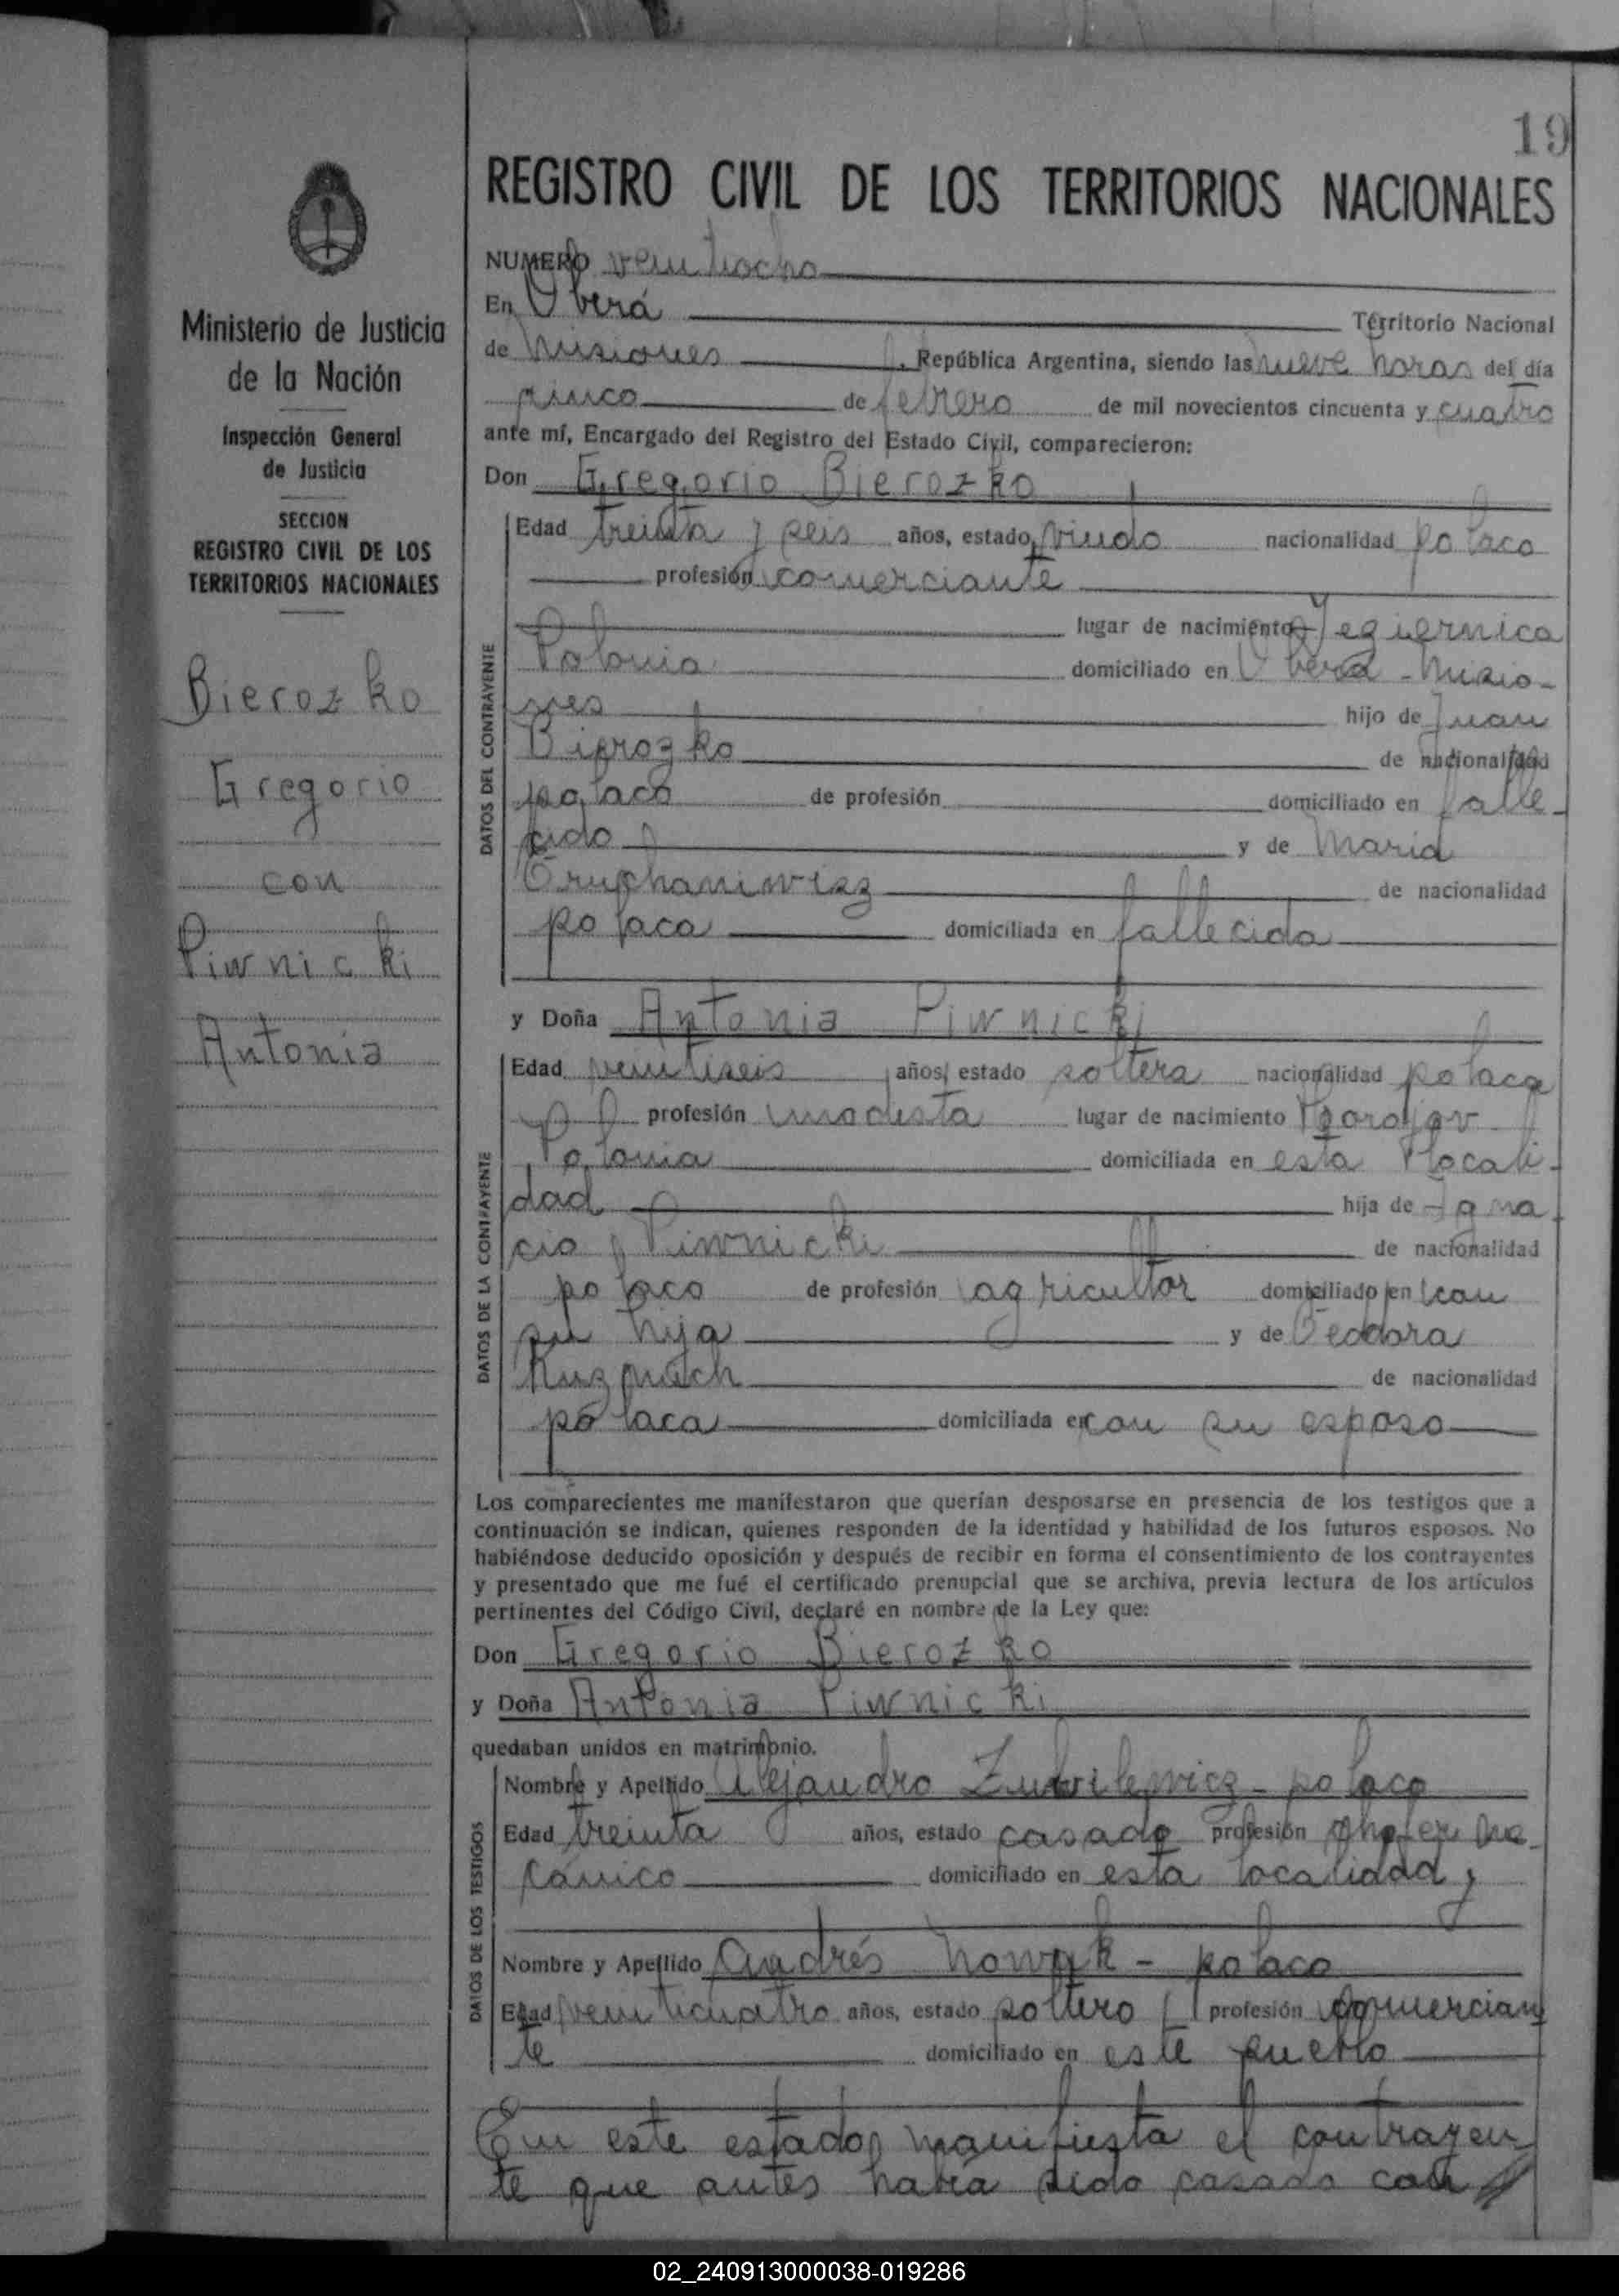 19
REGISTRO CIVIL DE LOS TERRITORIOS NACIONALES
Ministerio de Justicia
de la Nación
Inspección General
de Justicia
SECCION
REGISTRO CIVIL DE LOS
TERRITORIOS NACIONALES
Bierozko
Gregorio
con
Piwnicki
Antonia
NUMERO veintiocho
En Oberá Territorio Nacional
de Misiones, República Argentina, siendo las nueve horas del día
cinco de febrero de mil novecientos cincuenta y cuatro
ante mí, Encargado del Registro del Estado Civil, comparecieron:
Don Gregorio Bierozko
DATOS DEL CONTRAYENTE
Edad treinta y seis años, estado viudo nacionalidad polaco
profesión comerciante
lugar de nacimiento
Polonia domiciliado en Oberá - Misio-
nes hijo de Juan
Bierozko de nacionalidad
polaco de profesión domiciliado en falle-
cido y de María
de nacionalidad
polaca domiciliada en fallecida
y Doña Antonia Piwnicki
DATOS DE LA CONTRAYENTE
Edad veintiseis años, estado soltera nacionalidad polaca
profesión modista lugar de nacimiento
Polonia domiciliada en esta locali-
dad hija de Igna-
cio Piwnicki de nacionalidad
polaco de profesión agricultor domiciliado en con
su hija y de Teodora
de nacionalidad
polaca domiciliada en con su esposo
Los comparecientes me manifestaron que querían desposarse en presencia de los testigos que a
continuación se indican, quienes responden de la identidad y habilidad de los futuros esposos. No
habiéndose deducido oposición y después de recibir en forma el consentimiento de los contrayentes
y presentado que me fué el certificado prenupcial que se archiva, previa lectura de los artículos
pertinentes del Código Civil, declaré en nombre de la Ley que:
Don Gregorio Bierozko
y Doña Antonia Piwnicki
quedaban unidos en matrimonio.
DATOS DE LOS TESTIGOS
Nombre y Apellido Alejandro - polaco
Edad treinta años, estado casado profesión chofer me-
cánico domiciliado en esta localidad y
Nombre y Apellido Andrés Nowak - polaco
Edad veinticuatro años, estado soltero profesión comercian
te domiciliado en este pueblo
En este estado manifiesta el contrayen
te que antes había sido casado con
02_240913000038-019286